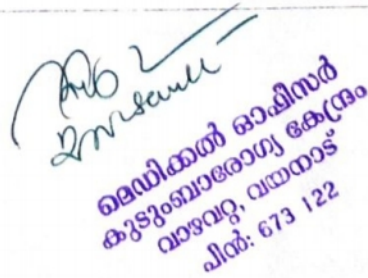 മെഡിക്കൽ ഓഫീസർ
കുടുംബാരോഗ്യ കേന്ദ്രം
വാഴവറ്റ, വയനാട്
പിൻ: 673 122